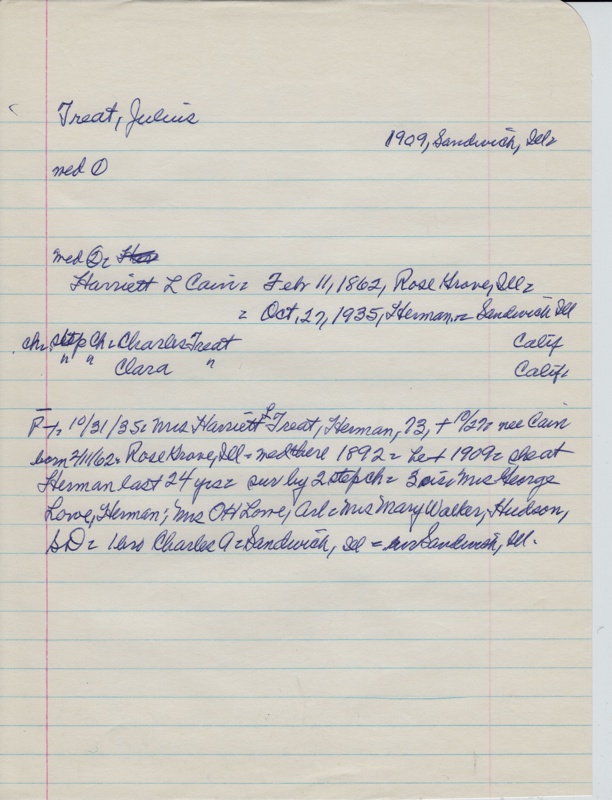 Treat, Julius
1909, Sandwich, Ill=
med ①
med ②=
Harriett L Cain= Feb 11, 1862, Rose Grove, Ill=
= Oct, 27, 1935, Herman,= Sandwich Ill
ch= step Ch= Charles Treat Calif
" " Clara " Calif=
10/31/35= Mrs Harriett L Treat, Herman, 73, + 10/27= nee Cain
born 2/11/62= Rose Grove, Ill= med there 1892= he + 1909= she at
Herman last 24 yrs= sur by 2 step ch= 3 sis= Mrs George
Lowe, Herman; Mrs OH Lowe, Arl= Mrs Mary Walker, Hudson,
S.D= 1 bro Charles A= Sandwich, Ill = bur Sandwich, Ill.